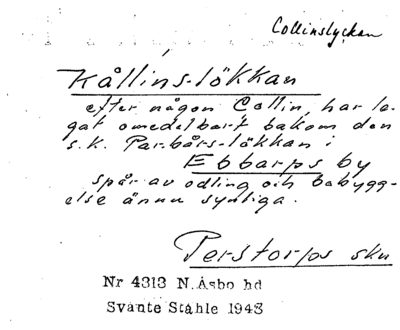 Collinslyckan
Kållins-lökkan
efter någon Collin, har le-
gat omedelbart bakom den
s.k. Parbårs-lökkan i
Ebbarps by
spår av odling och bebygg-
else ännu synliga.
Perstorps skn
Nr 4313 N. Åsbo hd
Svante Ståhle 1948